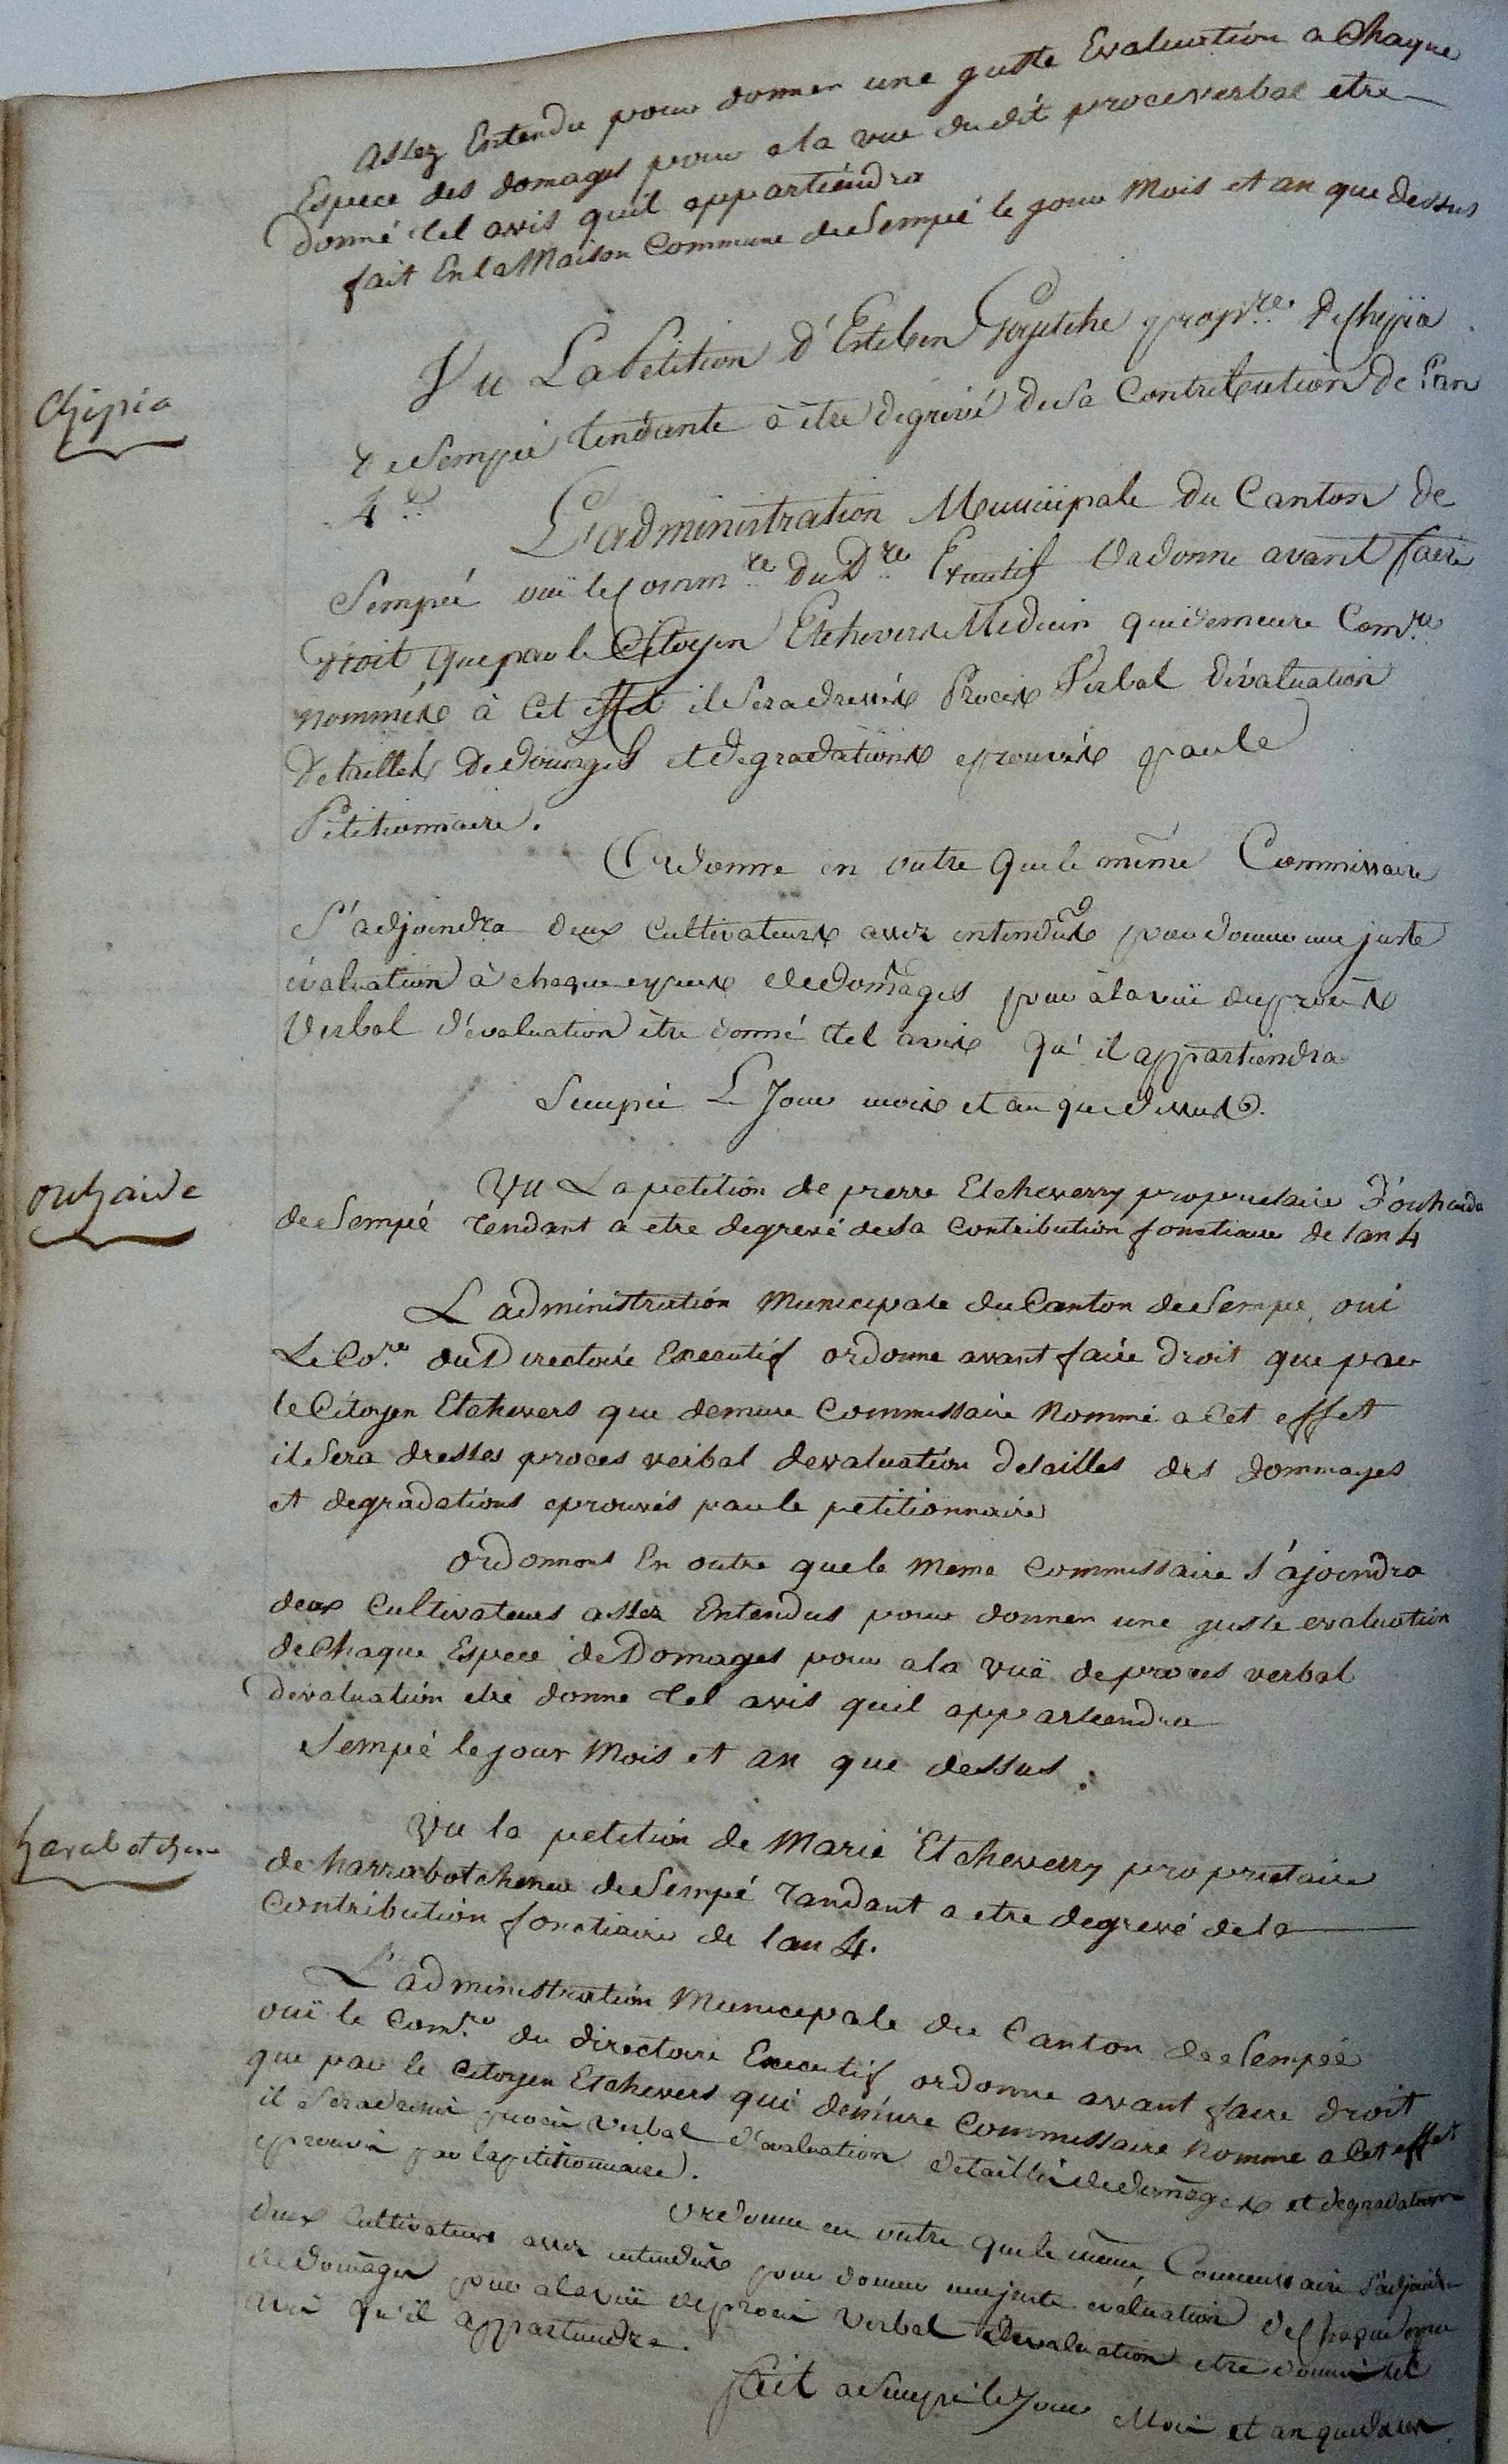 assez Entendu pour donner une guste Evaluation a Chaque
Espece des domages pour a la vue dudit procesverbal etre
donné tel avis quil appartiendra
fait En la Maison Commune de Sempé le jour Mois et an que dessus
Chipia
Vu La Petition d'Esteben propre. De Chipia
de Sempé tendante a être dégrévé de Sa Contribution de l'an
4e.
L'administration Municipale du Canton de
Sempé ouï le Commre du Dre Executif Ordonne avant faire
droit que par le Citoyen Etchevers Medecin qui demeure Comre
nommés à Cet effet il Sera dressés Procés Verbal d'évaluation
Detaillés De domages et degradations eprouvés par le
Petitionnaire.
Ordonne en outre que le même Commissaire
S'adjoindra deux Cultivateurs assez entendus pour donner une juste
évaluation à chaque espece de domages pour à la vuë du procés
Verbal d'évaluation être donné tel avis qu'il appartiendra
Sempé Le Jour mois et an que dessus.
outzaide
Vu La petition de pierre Etcheverry proprietaire
de Sempé Tendant a etre degrevé de sa Contribution fonctiaire de lan 4
L administration Municipale du Canton de Sempé oui
Le Co.re du Directoire Executif ordonne avant faire droit que par
le Citoyen Etchevers que demeure Commissaire Nommé a Cet effet
il Sera dresses proces verbal devaluation detailles des dommages
et degradations eprouvés par le petitionnaire
ordonnons En outre que le meme Commissaire s'ajoindra
deux Cultivateurs assez Entendus pour donner une juste evaluation
de Chaque Espece de Domages pour a la vuë de proces verbal
devaluation etre donne tel avis quil appartiendra
Sempé le jour Mois et an que dessus.
Vu la petition de Marie Etcheverry proprietaire
de harrabotchenea de Sempé Tandant a etre degrevé de la
Contribution fonctiaire de lan 4.
L'administration Municipale du Canton de Sempéé
ouï le Comre. du directoire Executif ordonne avant faire droit
que par le Citoyen Etchevers qui demeure Commissaire Nomme a Cet effet
il Sera dressé procés Verbal d'evaluation detaillé de domages et degradations
eprouvés par la petitionnaire.
ordonne en outre que le même Commissaire S'adjoindra
deux Cultivateurs assez entendus pour donner une juste evaluation de chaque espece
de domages pour a la vuë de procés Verbal devaluation etre donné tel
avis qu'il appartiendra.
fait a Sempé le Jour Mois et an que dessus.